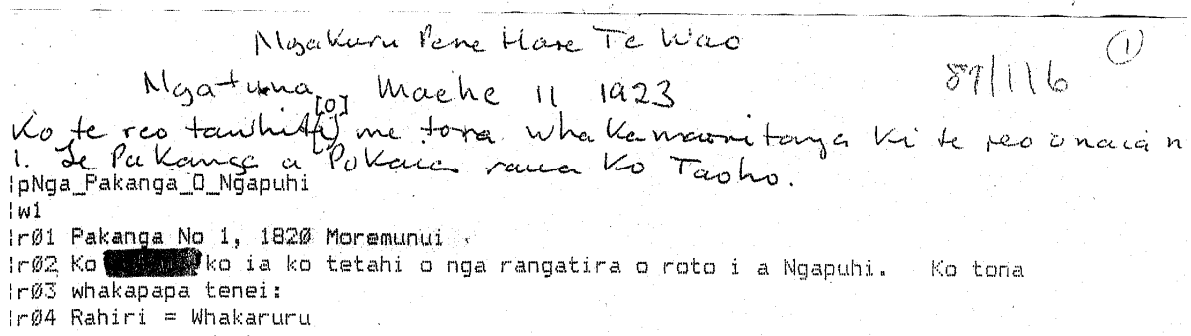 Ngakuru Pene Hare Te Wao
①
89/116
Ngatuna, Maehe 11 1923
[o]
Ko te reo tawhito me tona whakamaoritanga ki te reo onaian
1. Te Pakanga a Pokaia raua ko Taoho.
|pNga_Pakanga_O_Ngapuhi
|w1
|r01 Pakanga No 1, 1820 Moremunui
|r02 Ko ko ia ko tetahi o nga rangatira o roto i a Ngapuhi. Ko tona
|r03 whakapapa tenei:
|r04 Rahiri = Whakaruru